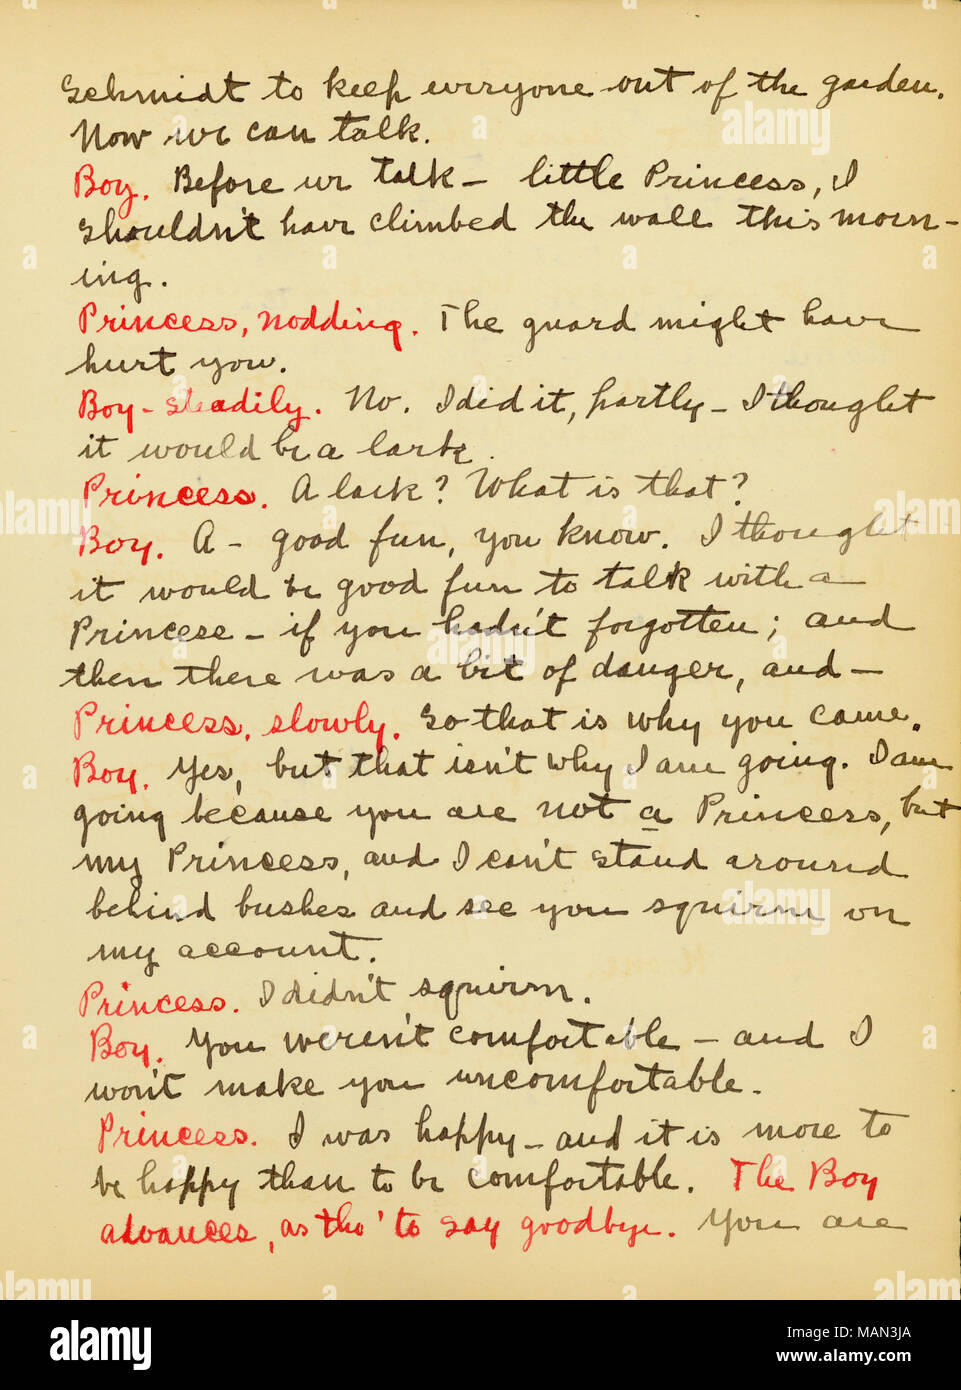 Schmidt to keep everyone out of the garden.
Now we can talk.
Boy. Before we talk – little Princess, I
shouldn't have climbed the wall this morn-
ing.
Princess, nodding. The guard might have
hurt you.
Boy - steadily. No. I did it, partly – I thought
it would be a lark.
Princess. A lark? What is that?
Boy. A – good fun, you know. I thought
it would be good fun to talk with a
Princess – if you hadn't forgotten; and
then there was a bit of danger, and –
Princess, slowly. So that is why you came.
Boy. Yes, but that isn't why I am going. I am
going because you are not a Princess, but
my Princess, and I can't stand around
behind bushes and see you squirm on
my account.
Princess. I didn't squirm.
Boy. You weren't comfortable – and I
won't make you uncomfortable.
Princess. I was happy – and it is more to
be happy than to be comfortable. The Boy
advances, as tho' to say goodbye. You are
alamy
Image ID: MAN3JA
www.alamy.com